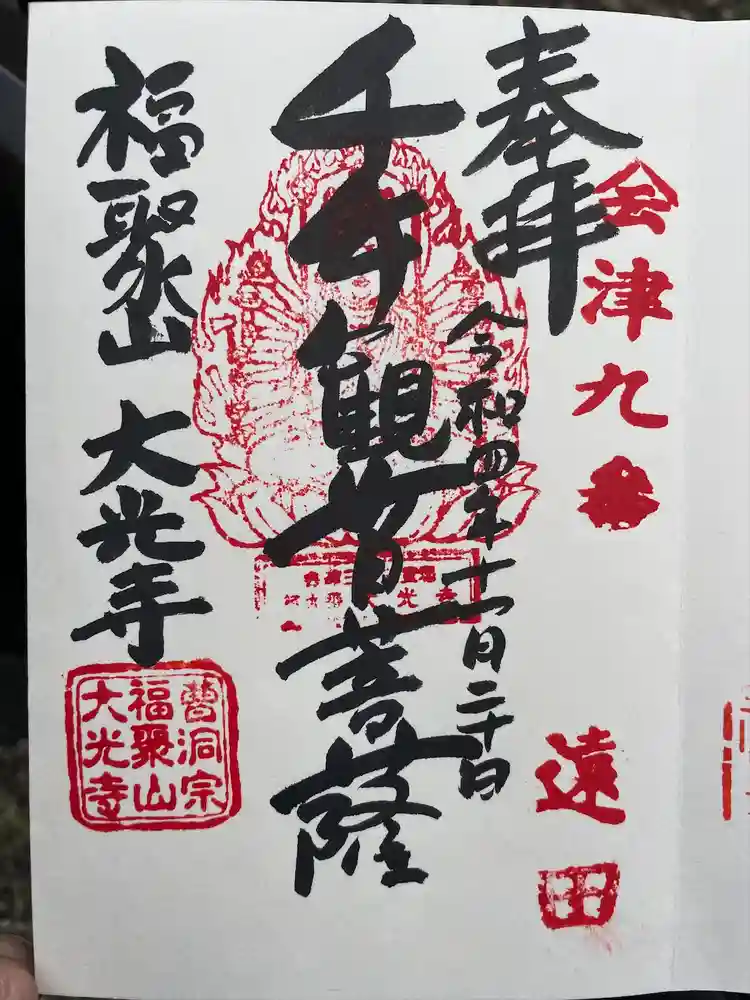 奉拝
会津九番
遠田
令和四年十一月二十日
千手観音菩薩
福聚山 大光寺
曹洞宗
福聚山
大光寺